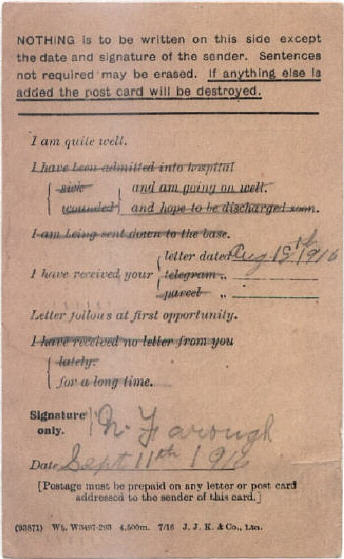 NOTHING is to be written on this side except
the date and signature of the sender. Sentences
not required may be erased. If anything else is
added the post card will be destroyed.
I am quite well.
I have been admitted into hospital
sick and am going on well.
wounded and hope to be discharged soon.
I am being sent down to the base.
letter dated Aug 1916
I have received your telegram „
parcel „
Letter follows at first opportunity.
I have received no letter from you
lately.
for a long time.
Signature
only.
Date Sept 11th 1916
[Postage must be prepaid on any letter or post card
addressed to the sender of this card.]
(93871) Wt. W3497-293 4,500m. 7/16 J. J. K. & Co., Ltd.